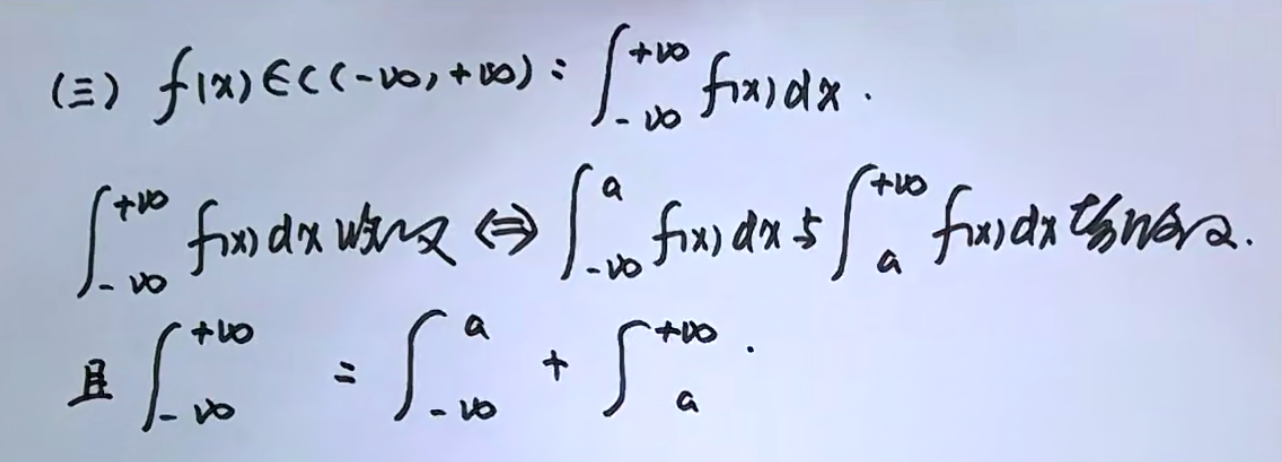 (三) f(x)∈C(-∞,+∞): ∫_{-∞}^{+∞} f(x)dx.
∫_{-∞}^{+∞} f(x)dx 收敛 ⇔ ∫_{-∞}^{a} f(x)dx 与 ∫_{a}^{+∞} f(x)dx 均收敛.
且 ∫_{-∞}^{+∞} = ∫_{-∞}^{a} + ∫_{a}^{+∞}.